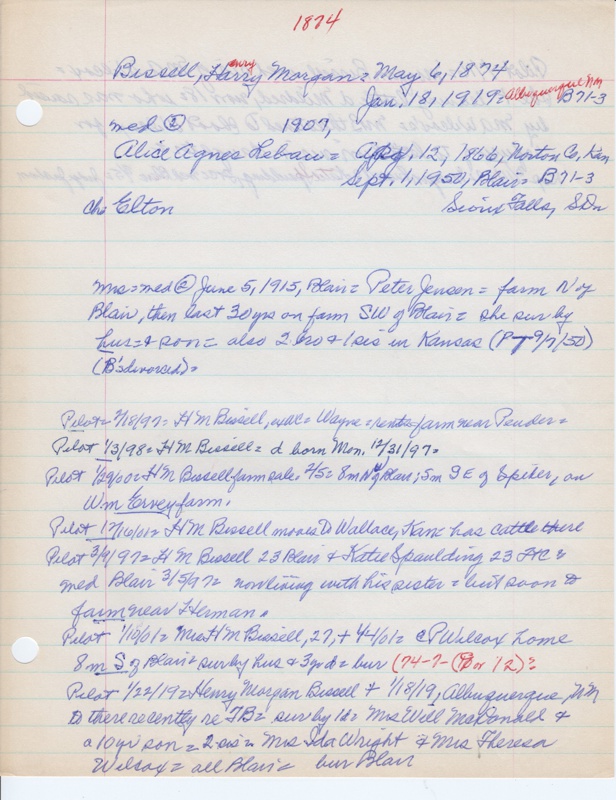 1874
Bissell, Harry Henry Morgan = May 6, 1874
Jan. 18, 1919 = Albuquerque NM B71-3
med ② 1907,
Alice Agnes Lebau = Aug. 12, 1866, Norton Co, Kan
Sept. 1, 1950, Blair = B71-3
ch: Elton Sioux Falls, SDn
Mrs = med @ June 5, 1915, Blair = Peter Jensen = farm N of
Blair, then last 30 yrs on farm SW of Blair = she sur by
hus = & son = also 2 bro & 1 sis in Kansas (P 9/7/50)
(B's divorced) =
Pilot = 2/18/97 = H M Bissell, = Wayne = rents farm near Pender =
Pilot 1/3/98 = H M Bissell = d born Mon, 12/31/97 =
Pilot 1/29/00 = H M Bissell farm sale, 2/5 = 8m N of Blair; 5m SE of Spiker, on
Wm Ervey farm.
Pilot 1/16/01 = H M Bissell moves to Wallace, Kan = has cattle there
Pilot 3/9/97 = H M Bissell 23 Blair & Katie Spaulding 23 =
med Blair 3/5/97 = now living with his sister = but soon to
farm near Herman.
Pilot 1/10/01 = Mrs H M Bissell, 27, + 4-4/01 = C P Wilcox home
8 m S of Blair = sur by hus & 3 yr d = bur (74-7- (P or 12) =
Pilot 1/22/19 = Henry Morgan Bissell + 1/18/19, Albuquerque, NM
to there recently re TB = sur by 1d = Mrs Will McDonald &
a 10 yr son = 2 sis = Mrs Ida Wright & Mrs Theresa
Wilcox = all Blair = bur Blair